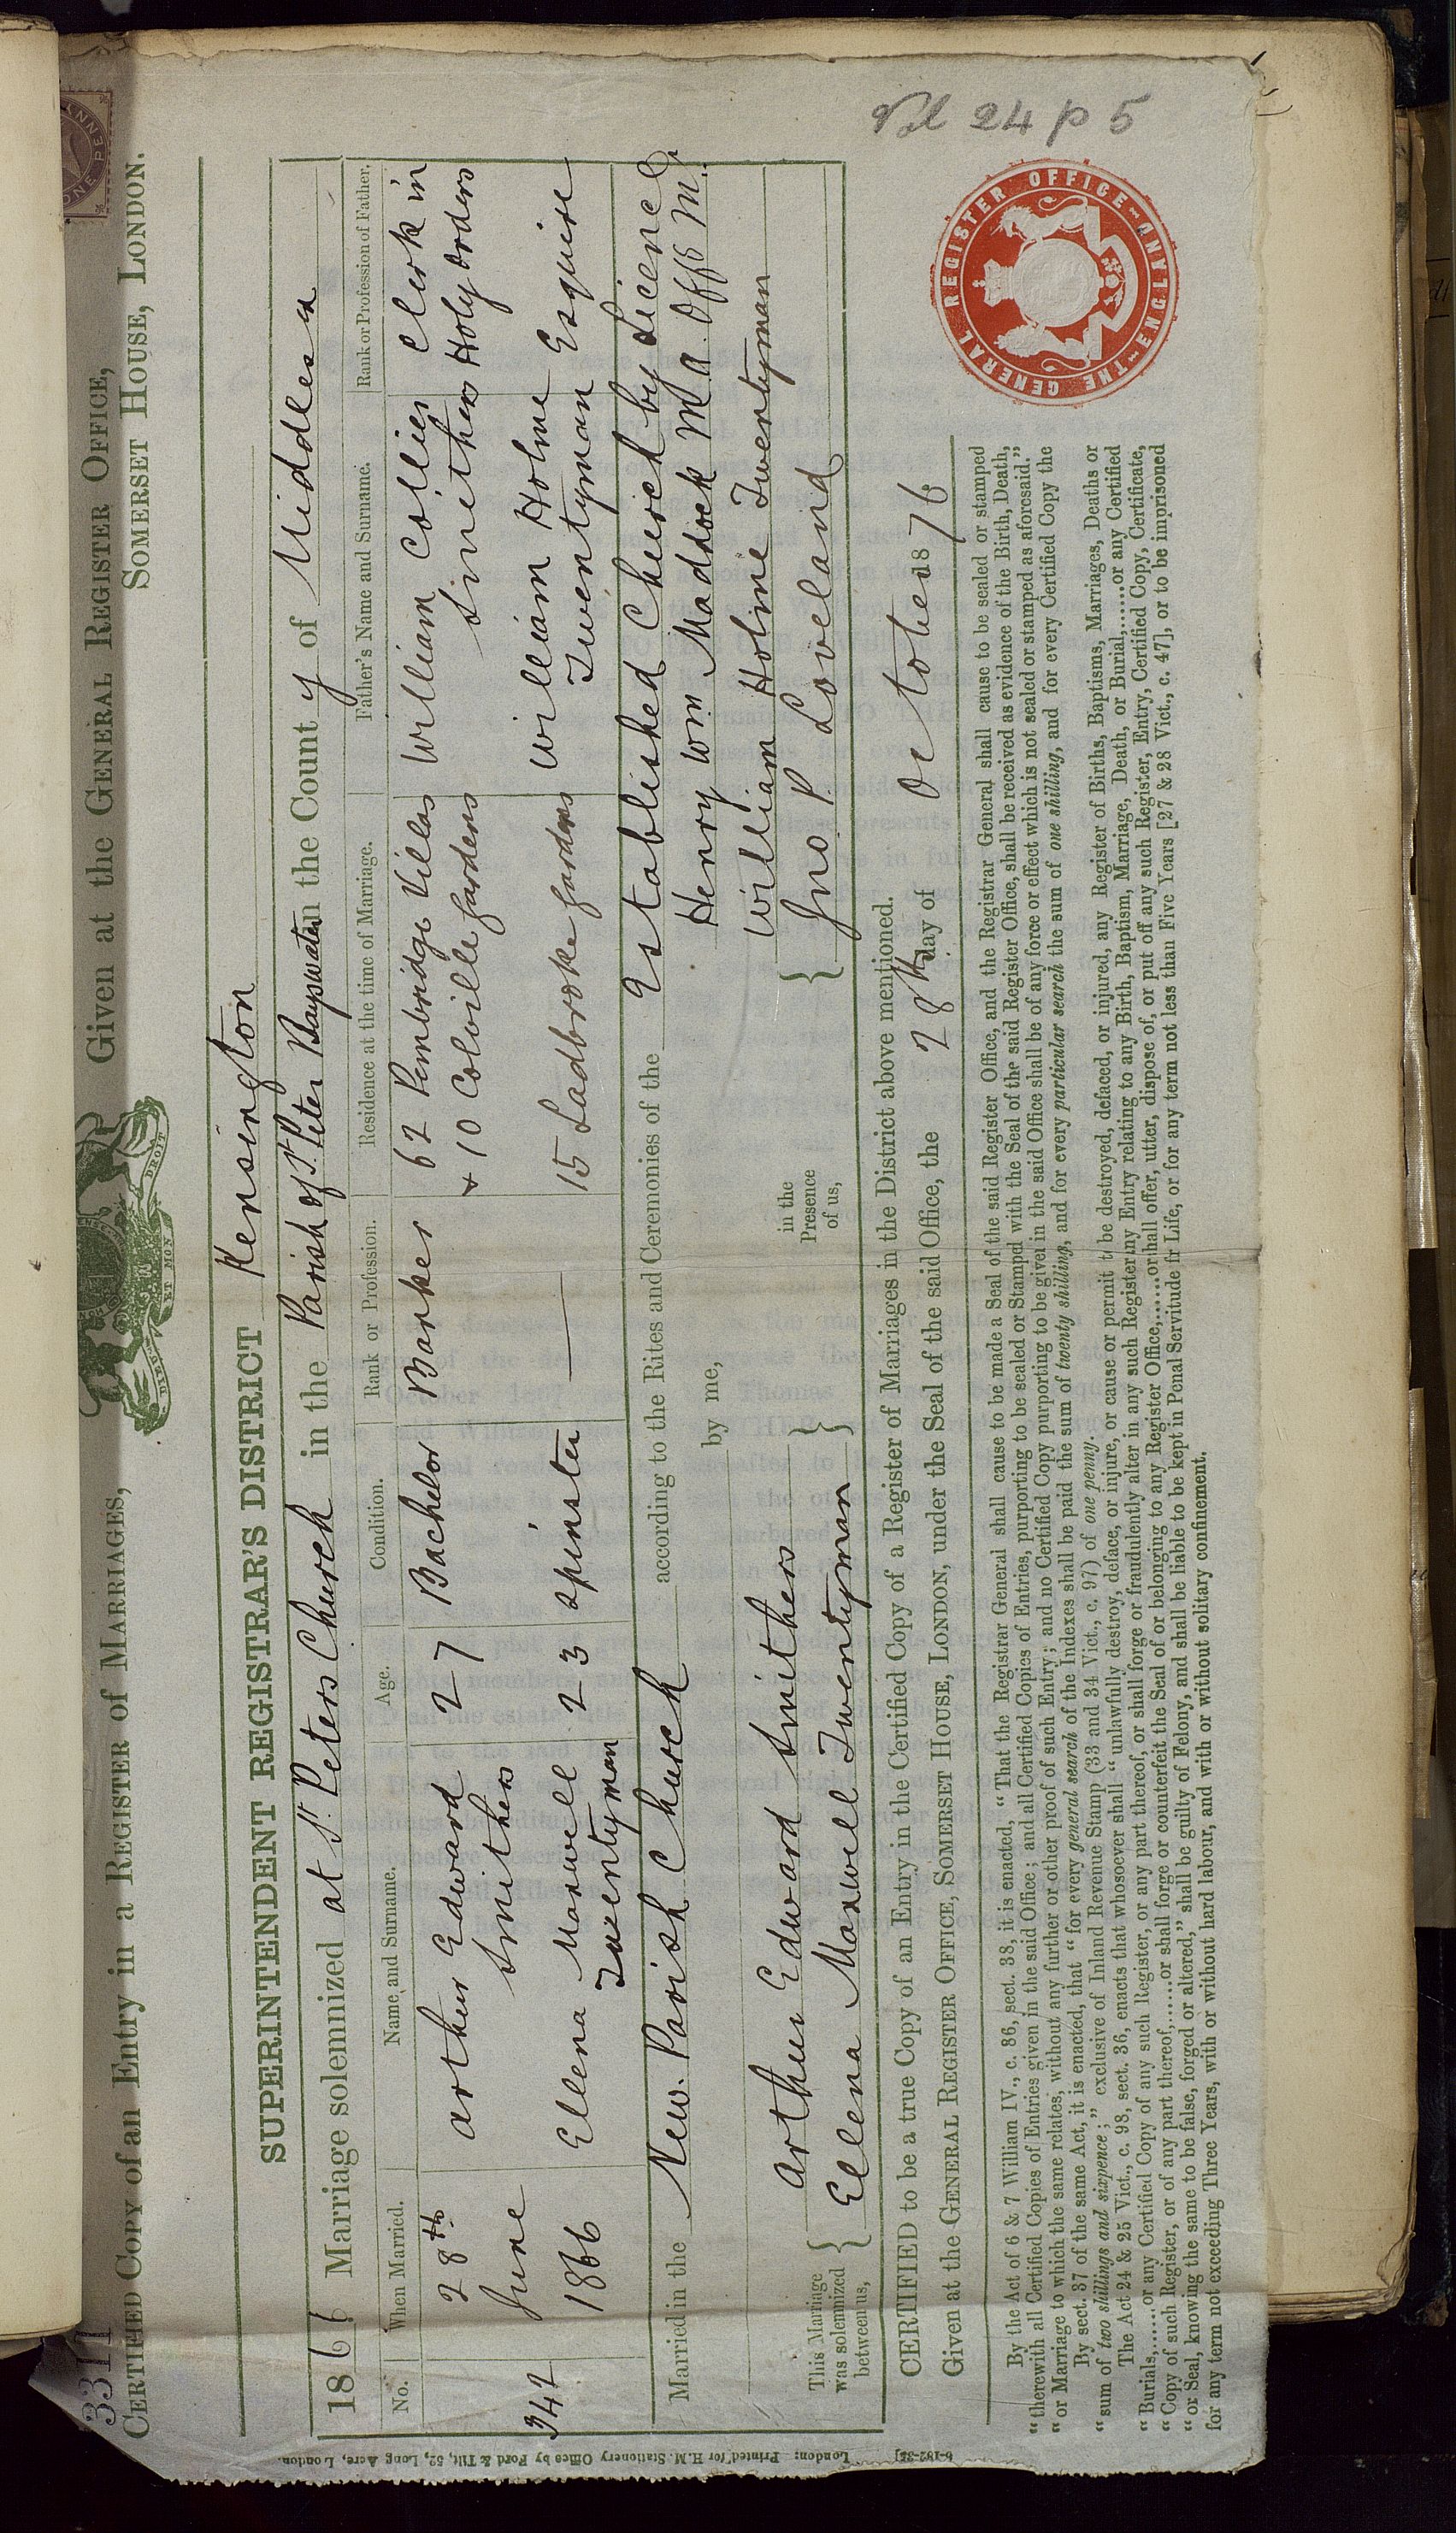 3311
CERTIFIED COPY of an Entry in a REGISTER OF MARRIAGES, Given at the GENERAL REGISTER OFFICE,
SOMERSET HOUSE, LONDON.
DIEU ET MON DROIT
ONE PENNY
SUPERINTENDENT REGISTRAR'S DISTRICT Kensington
1866 Marriage solemnized at St Peters Church in the Parish of St Peter Bayswater in the County of Middlesex
No. When Married. Name and Surname. Age. Condition. Rank or Profession. Residence at the time of Marriage. Father's Name and Surname. Rank or Profession of Father.
342
28th June 1866
Arthur Edward Smithers 27 Bachelor Banker 62 Pembridge Villas & 10 Colville Gardens William Collier Smithers Clerk in Holy Orders
Ellena Maxwell Twentyman 23 Spinster — 15 Ladbroke Gardens William Holme Twentyman Esquire
Married in the New Parish Church according to the Rites and Ceremonies of the Established Church by Licence
by me, Henry Wm Maddock M A Offg M.
This Marriage was solemnized between us, { Arthur Edward Smithers
Ellena Maxwell Twentyman } in the Presence of us, { William Holme Twentyman
Jno P. Loveland
CERTIFIED to be a true Copy of an Entry in the Certified Copy of a Register of Marriages in the District above mentioned.
Given at the GENERAL REGISTER OFFICE, SOMERSET HOUSE, LONDON, under the Seal of the said Office, the 28th day of October 1876
By the Act of 6 & 7 William IV., c. 86, sect. 38, it is enacted, "That the Registrar General shall cause to be made a Seal of the said Register Office, and the Registrar General shall cause to be sealed or stamped
"therewith all Certified Copies of Entries given in the said Office; and all Certified Copies of Entries, purporting to be sealed or Stamped with the Seal of the said Register Office, shall be received as evidence of the Birth, Death,
"or Marriage to which the same relates, without any further or other proof of such Entry; and no Certified Copy purporting to be given in the said Office shall be of any force or effect which is not sealed or stamped as aforesaid."
By sect. 37 of the same Act, it is enacted, that "for every general search of the Indexes shall be paid the sum of twenty shilling, and for every particular search the sum of one shilling, and for every Certified Copy the
"sum of two shillings and sixpence;" exclusive of Inland Revenue Stamp (33 and 34 Vict., c. 97) of one penny.
The Act 24 & 25 Vict., c. 98, sect. 36, enacts that whosoever shall "unlawfully destroy, deface, or injure, or cause or permit to be destroyed, defaced, or injured, any Register of Births, Baptisms, Marriages, Deaths or
"Burials,......or any Certified Copy of any such Register, or any part thereof, or shall forge or fraudulently alter in any such Register any Entry relating to any Birth, Baptism, Marriage, Death, or Burial,......or any Certified
"Copy of such Register, or of any part thereof,......or shall forge or counterfeit the Seal of or belonging to any Register Office,......or shall offer, utter, dispose of, or put off any such Register, Entry, Certified Copy, Certificate,
"or Seal, knowing the same to be false, forged or altered," shall be guilty of Felony, and shall be liable to be kept in Penal Servitude fr Life, or for any term not less than Five Years [27 & 28 Vict., c. 47], or to be imprisoned
for any term not exceeding Three Years, with or without hard labour, and with or without solitary confinement.
THE GENERAL REGISTER OFFICE ENGLAND
Vol 24 p 5
London: Printed for H.M. Stationery Office by Ford & Tilt, 52, Long Acre, London.